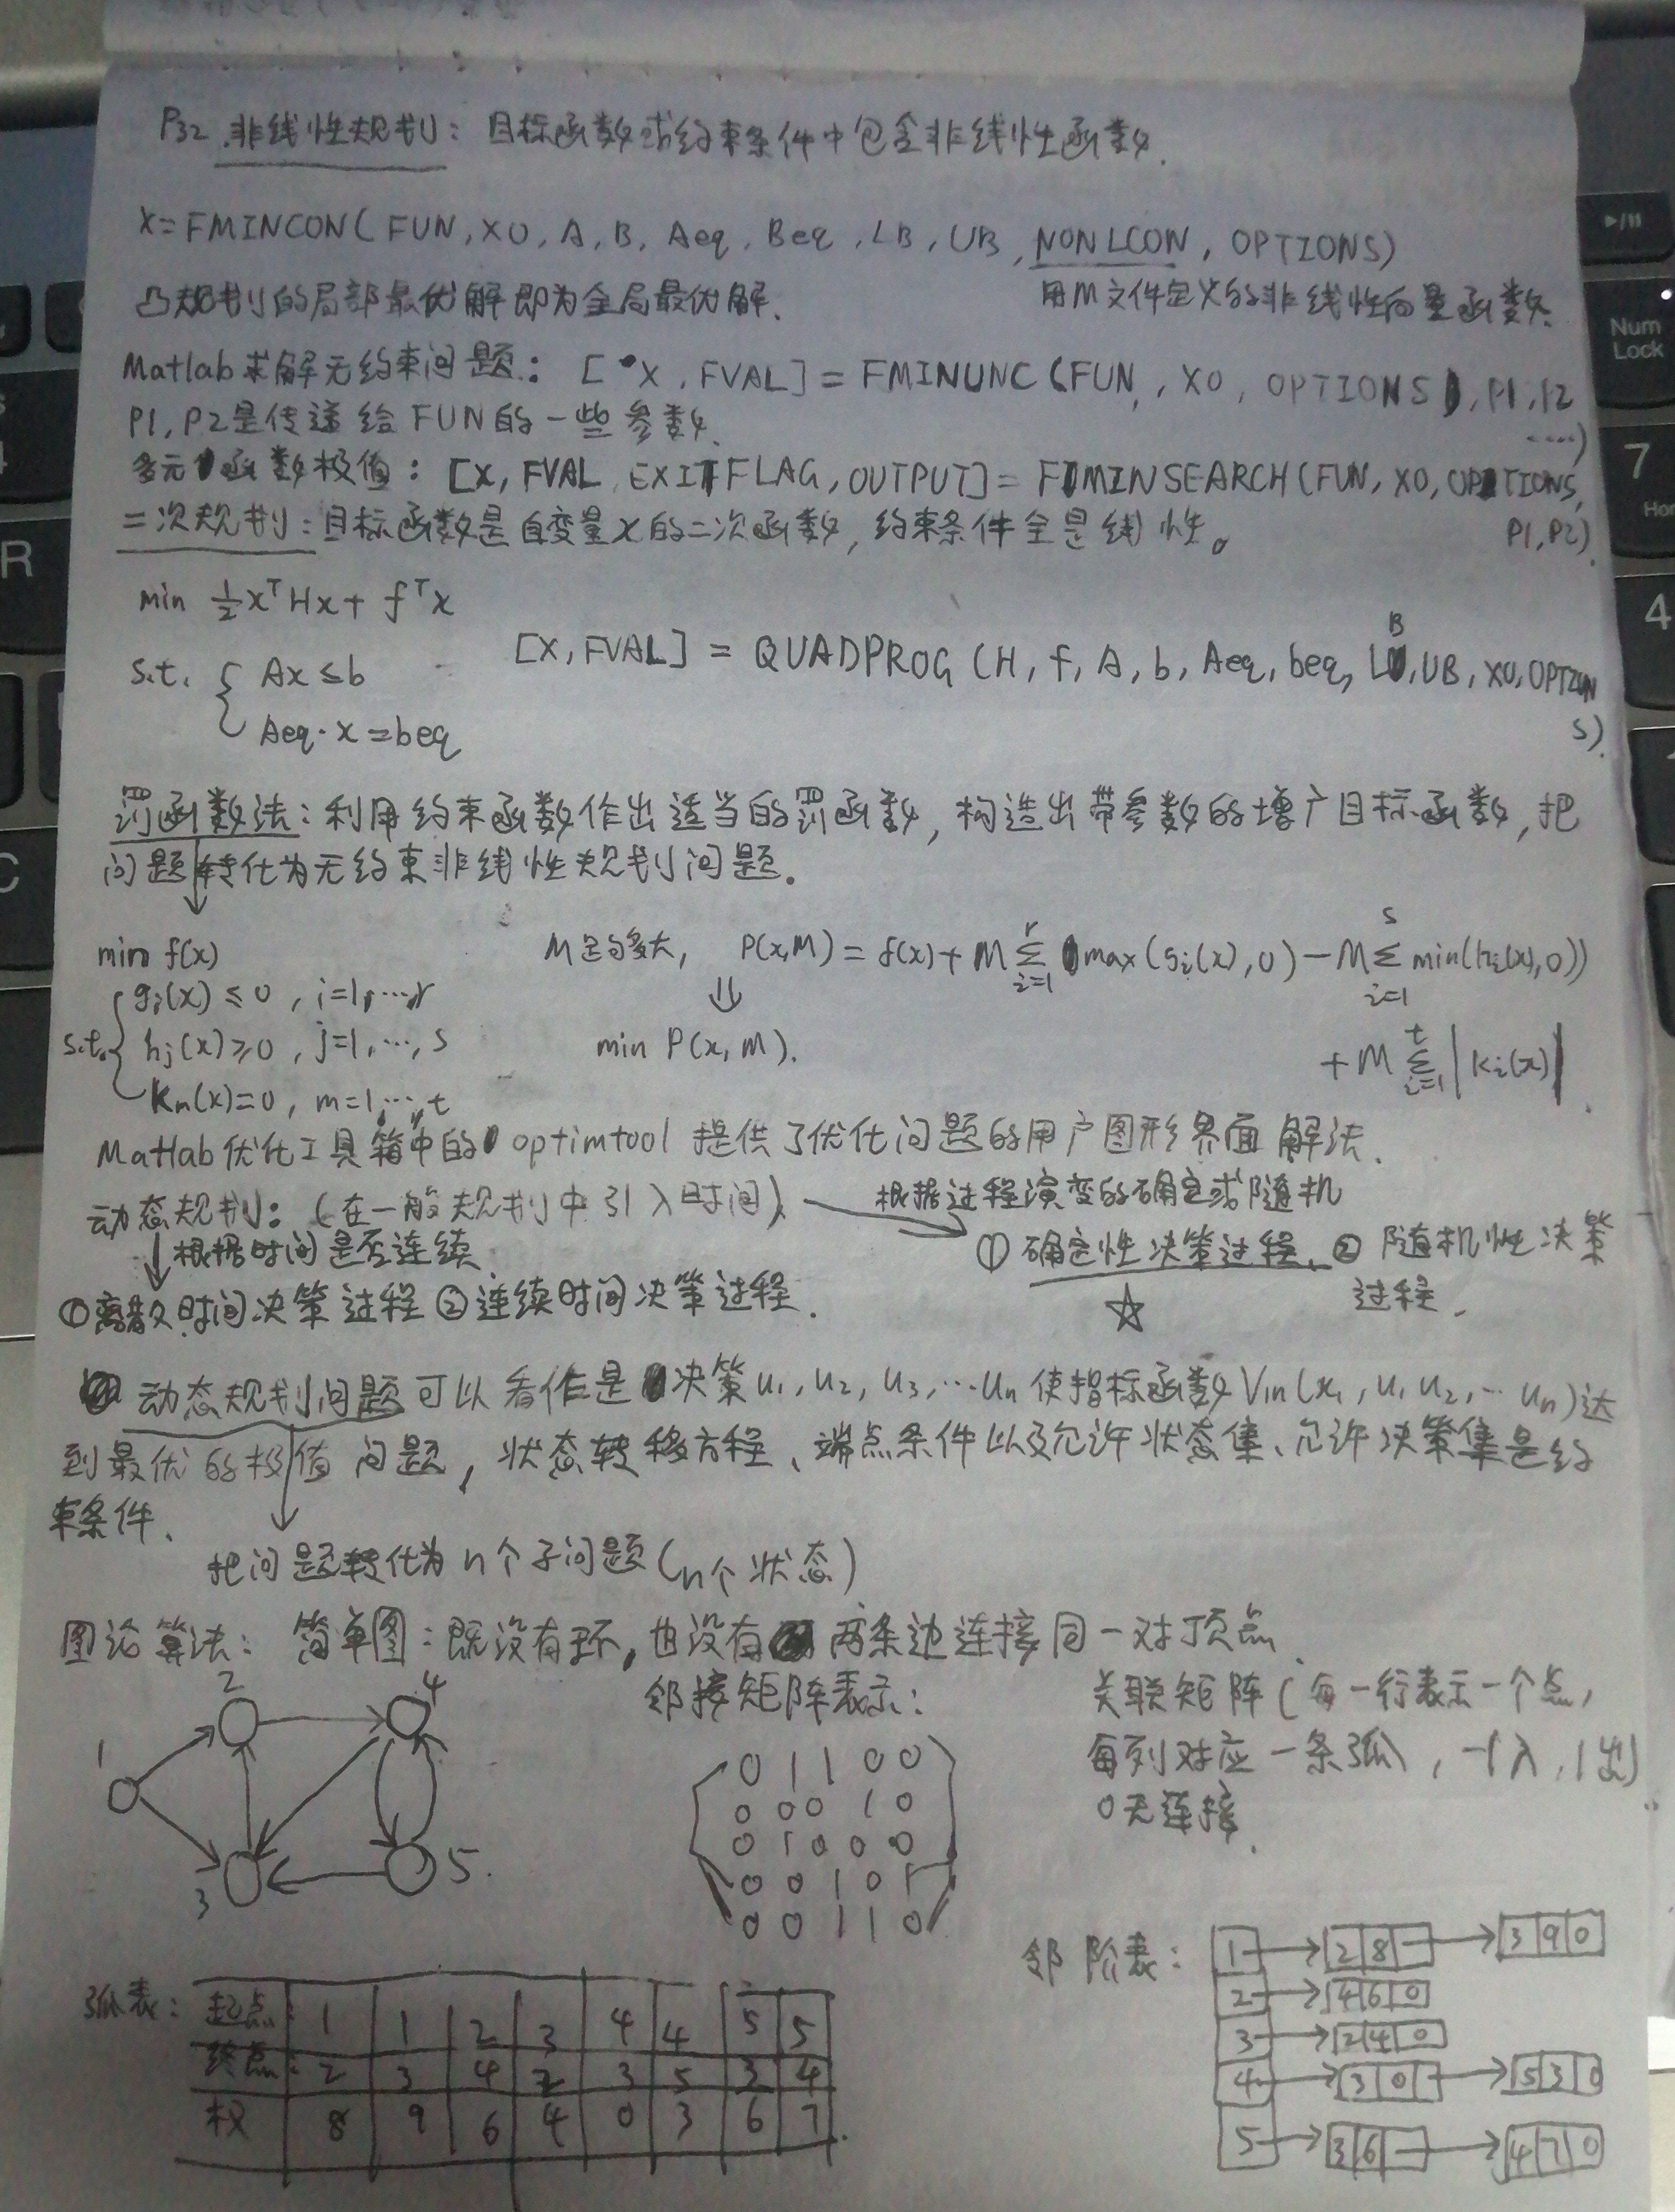 P32 非线性规划：目标函数或约束条件中包含非线性函数.
X=FMINCON(FUN, X0, A, B, Aeq, Beq, LB, UB, NONLCON, OPTIONS)
凸规划的局部最优解即为全局最优解. 用M文件定义的非线性向量函数.
Matlab求解无约束问题： [X, FVAL] = FMINUNC(FUN, X0, OPTIONS, P1, P2
....)
P1, P2是传递给FUN的一些参数.
多元函数极值：[X, FVAL, EXITFLAG, OUTPUT] = FMINSEARCH(FUN, X0, OPTIONS,
P1, P2)
二次规划：目标函数是自变量x的二次函数, 约束条件全是线性。
min ½xᵀHx + fᵀx
s.t. { Ax ≤ b
Aeq·x = beq
[X, FVAL] = QUADPROG (H, f, A, b, Aeq, beq, LB, UB, X0, OPTION
S)
罚函数法：利用约束函数作出适当的罚函数, 构造出带参数的增广目标函数, 把
问题转化为无约束非线性规划问题。
min f(x)
s.t. { gi(x) ≤ 0, i=1,…,r
hj(x) ≥ 0, j=1,…,s
km(x)=0, m=1,…,t
M足够多大, P(x,M) = f(x) + M Σ_{i=1}^{r} max(gi(x), 0) − M Σ_{i=1}^{s} min(hi(x), 0))
+ M Σ_{i=1}^{t} |ki(x)|
⇓
min P(x, M).
Matlab优化工具箱中的optimtool提供了优化问题的用户图形界面解法.
动态规划：(在一般规划中引入时间) → 根据过程演变的确定或随机
① 确定性决策过程、② 随机性决策
过程.
☆
↓根据时间是否连续
①离散时间决策过程 ②连续时间决策过程.
动态规划问题可以看作是决策u1, u2, u3, …un 使指标函数V1n(x1, u1 u2, … un)达
到最优的极值问题, 状态转移方程、端点条件以及允许状态集、允许决策集是约
束条件.
把问题转化为n个子问题(n个状态)
图论算法： 简单图：既没有环, 也没有两条边连接同一对顶点.
1 2 3 4 5
邻接矩阵表示：
0 1 1 0 0
0 0 0 1 0
0 1 0 0 0
0 0 1 0 1
0 0 1 1 0
关联矩阵(每一行表示一个点,
每列对应一条弧, -1入, 1出)
0无连接.
弧表：
起点 1 1 2 3 4 4 5 5
终点 2 3 4 2 3 5 3 4
权 8 9 6 4 0 3 6 7
邻阶表：
1 → 2 8 → 3 9 0
2 → 4 6 0
3 → 2 4 0
4 → 3 0 → 5 3 0
5 → 3 6 → 4 7 0
Num
Lock
7
Hom
4
R
C